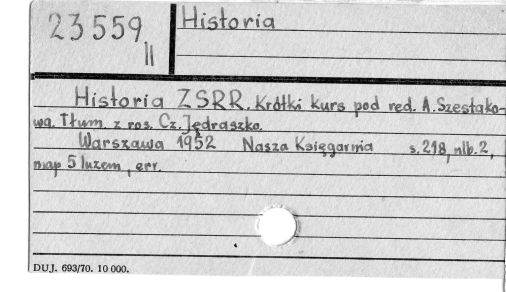 23559
II
Historia
Historia ZSRR. Krótki kurs pod red. A. Szestako-
wa. Tłum. z ros. Cz. Jędraszko.
Warszawa 1952 Nasza Księgarnia s. 218, nlb. 2,
map 5 luzem, err.
DUJ. 693/70. 10 000.